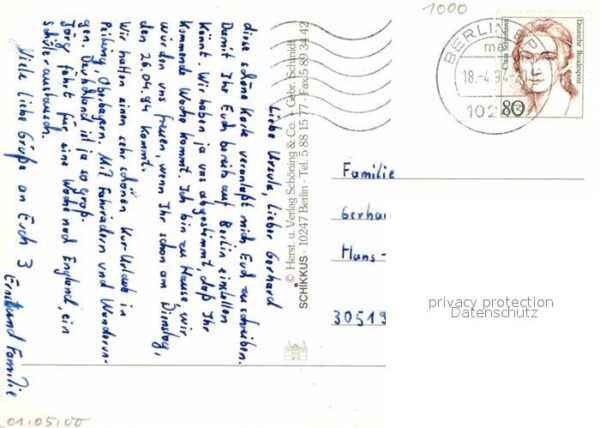 1000
Liebe Ursula, lieber Gerhard
diese schöne Karte veranlaßt mich Euch zu schreiben.
Damit Ihr Euch bereits auf Berlin einstellen
könnt. Wir haben ja vor abgestimmt, daß Ihr
kommende Woche kommt. Ich bin zu Hause, wir
würden uns freuen, wenn Ihr schon am Dienstag,
den 26.04.94 kommt.
Wir hatten einen sehr schönen Kur-Urlaub in
Oberbayern. Mit Fahrrädern und Wanderun-
gen. Deutschland ist ja so groß.
Jörg fährt für eine Woche nach England, ein
Schüleraustausch.
Viele liebe Grüße an Euch 3
Ernst und Familie
01.05.00
© Herst. u. Verlag Schöning & Co. + Gebr. Schmidt
SCHIKKUS · 10247 Berlin · Tel. 5 88 15 77 · Fax 5 89 34 42
BERLIN
18.-4.94-20
102
Deutsche Bundespost
80
Familie
Gerha
Hans-
30519
privacy protection
Datenschutz